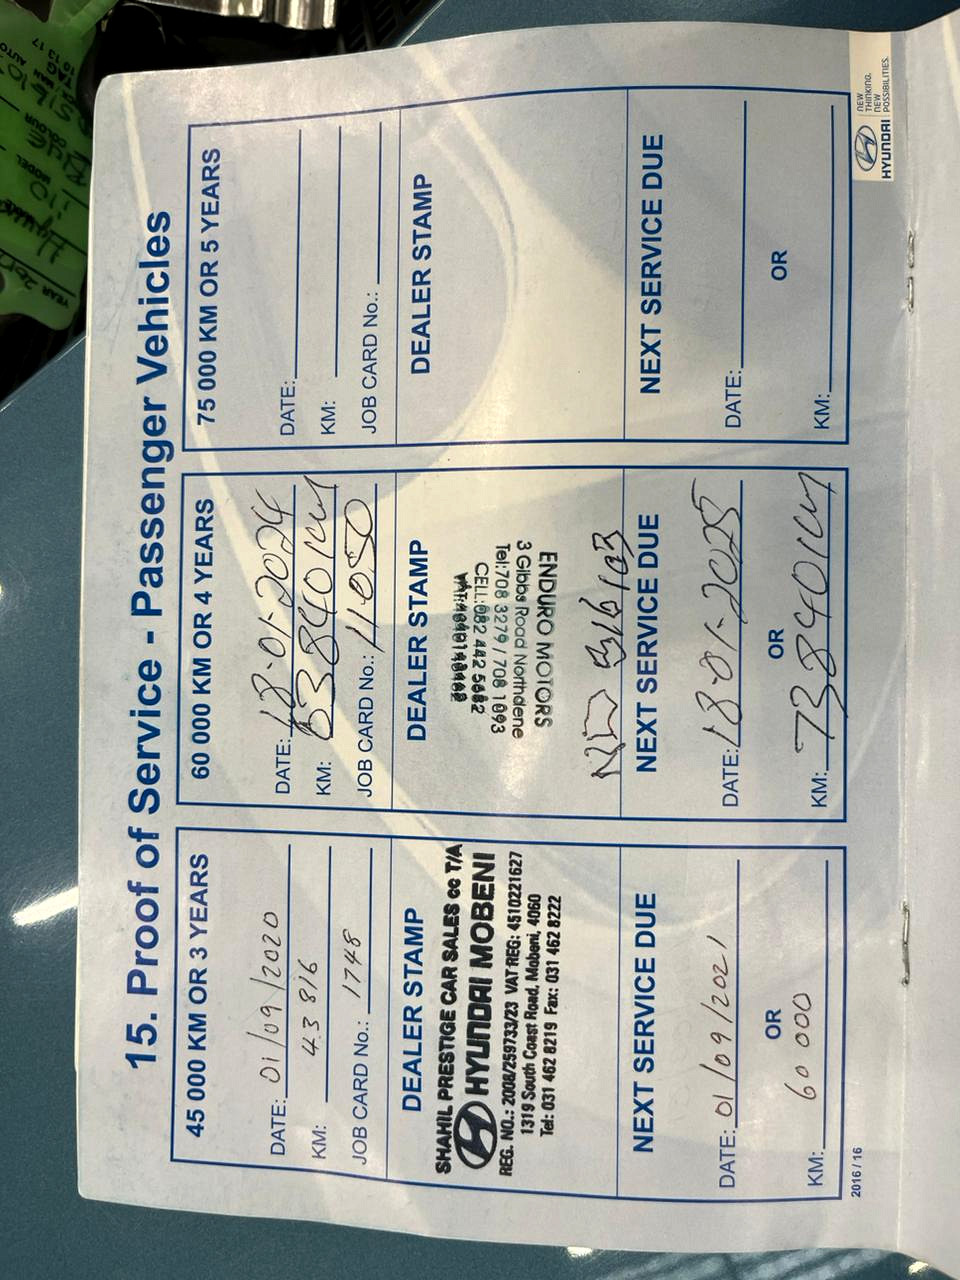 15. Proof of Service - Passenger Vehicles
45 000 KM OR 3 YEARS
DATE: 01/09/2020
KM: 43 816
JOB CARD No.: 1748
DEALER STAMP
SHAHIL PRESTIGE CAR SALES cc T/A
HYUNDAI MOBENI
REG. NO.: 2008/259733/23 VAT REG: 4510221627
1319 South Coast Road, Mobeni, 4060
Tel: 031 462 8219 Fax: 031 462 8222
NEXT SERVICE DUE
DATE: 01/09/2021
OR
KM: 60 000
60 000 KM OR 4 YEARS
DATE: 18-01-2024
KM: 63840km
JOB CARD No.: 11050
DEALER STAMP
CELL: 082 442 5682
Tel: 708 3279 / 708 1093
3 Gibbs Road Northdene
ENDURO MOTORS
NEXT SERVICE DUE
DATE: 18-01-2025
OR
KM: 73840km
75 000 KM OR 5 YEARS
DATE:
KM:
JOB CARD No.:
DEALER STAMP
NEXT SERVICE DUE
DATE:
OR
KM:
2016 / 16
HYUNDAI
NEW
THINKING.
NEW
POSSIBILITIES.
YEAR
MODEL
COLOUR
TAG
MAN AUTO
10 13 17